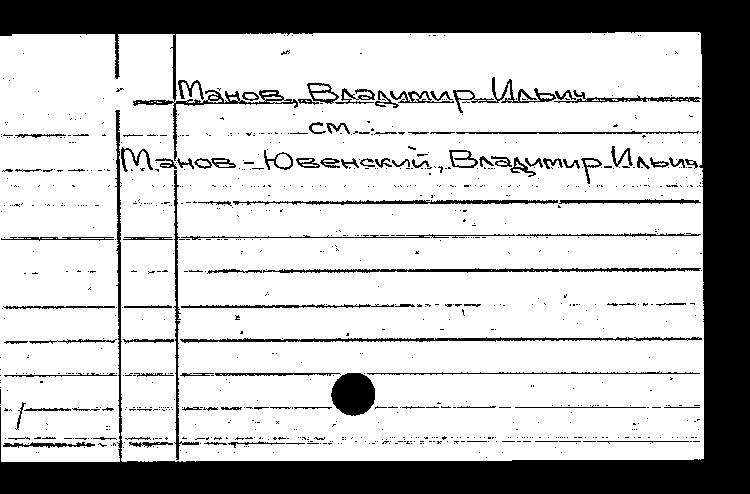 Манов, Владимир Ильич
см.:
Манов-Ювенский, Владимир Ильич.